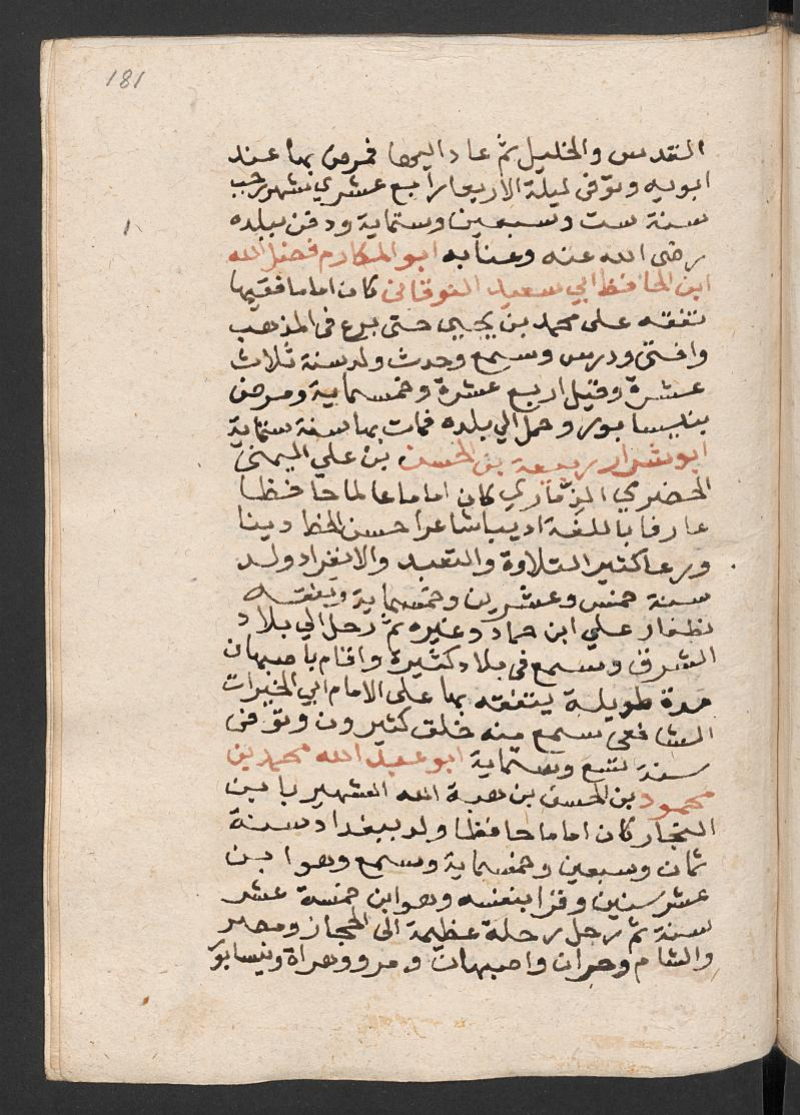 181
القدس والخليل ثم عاد اليها فمرض بها عند
ابويه وتوفى ليلة الاربعا رابع عشري شهر رجب
سنة ست وسبعين وستماية ودفن ببلده
رضى الله عنه وعنا به ابو المكارم فضل الله
ابن الحافظ ابي سعيد النوقانى كان اماما فقيها
تفقه على محمد بن يحيى حتى برع فى المذهب
وافتى ودرس وسمع وحدث ولد سنة ثلاث
عشرة وقيل اربع عشرة وخمسماية ومرض
بنيسابور وحمل الي بلده فمات بها سنة ستماية
ابو نزار ربيعة بن الحسن بن علي اليمنى
الحضري الذماري كان اماما عالما حافظا
عارفا باللغة اديبا شاعرا حسن الخط دينا
ورعا كثير التلاوة والتعبد والانفراد ولد
سنة خمس وعشرين وخمسماية وتفقه
بظفار علي ابن حماد وغيره ثم رحل الي بلاد
الشرق وسمع فى بلاد كثيرة واقام باصبهان
مدة طويلة يتفقه بها على الامام ابي الخيرات
الشافعى سمع منه خلق كثيرون وتوفى
سنة تسع وستماية ابو عبد الله محمد بن
محمود بن الحسن بن هبة الله الشهير بابن
النجار كان اماما حافظا ولد ببغداد سنة
ثمان وسبعين وخمسماية وسمع وهو ابن
عشر سنين وقرا بنفسه وهو ابن خمسة عشر
سنة ثم رحل رحلة عظيمة الى الحجاز ومصر
والشام وحران واصبهان ومرو وهراة ونيسابور